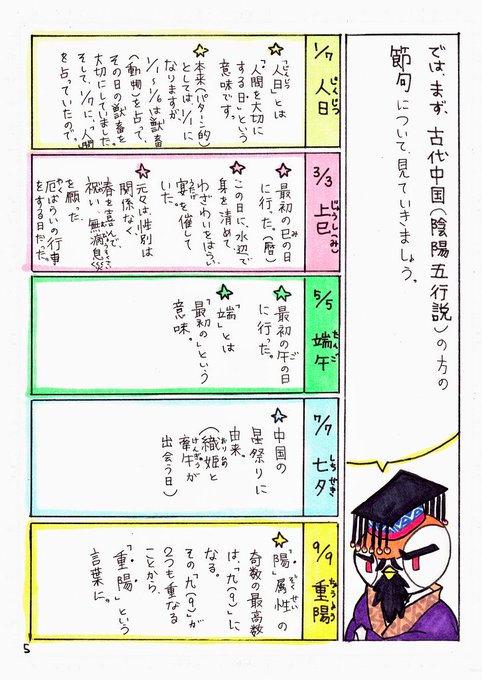 では、まず、古代中国(陰陽五行説)の方の
節句について見ていきましょう。
1/7 人日
じんじつ
☆「人日」とは
じんじつ
「人間を大切に
する日」という
意味です。
☆本来(パターン的)
としては、1/1に
なりますが、
1/1~1/6は獣畜
(動物)を占って、
その日の獣畜を
大切にしていました。
そして、1/7に、「人間」
を占っていたので。
3/3 上巳
じょうしつみ
☆最初の巳の日
に行った。(暦)
☆この日に、水辺で
身を清めて、
わざわいをはらい、
宴を催して
うたげ
いた。
☆元々は、性別は
関係なく、
春を喜んで、
祝い、無病息災
を願った。
厄ばらいの行事
やく
をする日だった。
5/5 端午
たんご
☆最初の午の日
に行った。
☆「端」とは
「最初の」という
意味。
7/7 七夕
しちせき
☆中国の
星祭りに
由来。
(織姫と
おりひめ
牽牛が
けんぎゅう
出会う日)
9/9 重陽
ちょうよう
☆「陽」属性の
ぞくせい
奇数の最高数
は、「九(9)」に
なる。
その「九(9)」が
2つも重なる
ことから、
「重陽」という
言葉に。
5